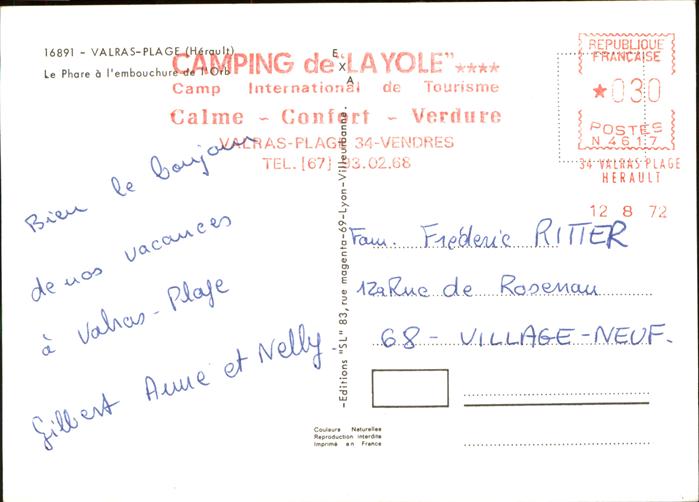 16891 - VALRAS-PLAGE (Hérault)
Le Phare à l'embouchure de l'Orb
CAMPING de "LA YOLE" ****
Camp International de Tourisme
Calme - Confort - Verdure
VALRAS-PLAGE 34-VENDRES
TEL. (67) 93.02.68
REPUBLIQUE
FRANCAISE
*030
POSTES
N 4617
34 VALRAS PLAGE
HERAULT
12 8 72
Bien le bonjour
de nos vacances
à Valras-Plage
Gilbert Anne et Nelly.
EXA
-Editions "SL" 83, rue magenta-69-Lyon-Villeurbanne.
Fam. Fréderic RITTER
12a Rue de Rosenau
68 - VILLAGE-NEUF.
Couleurs Naturelles
Reproduction interdite
Imprimé en France